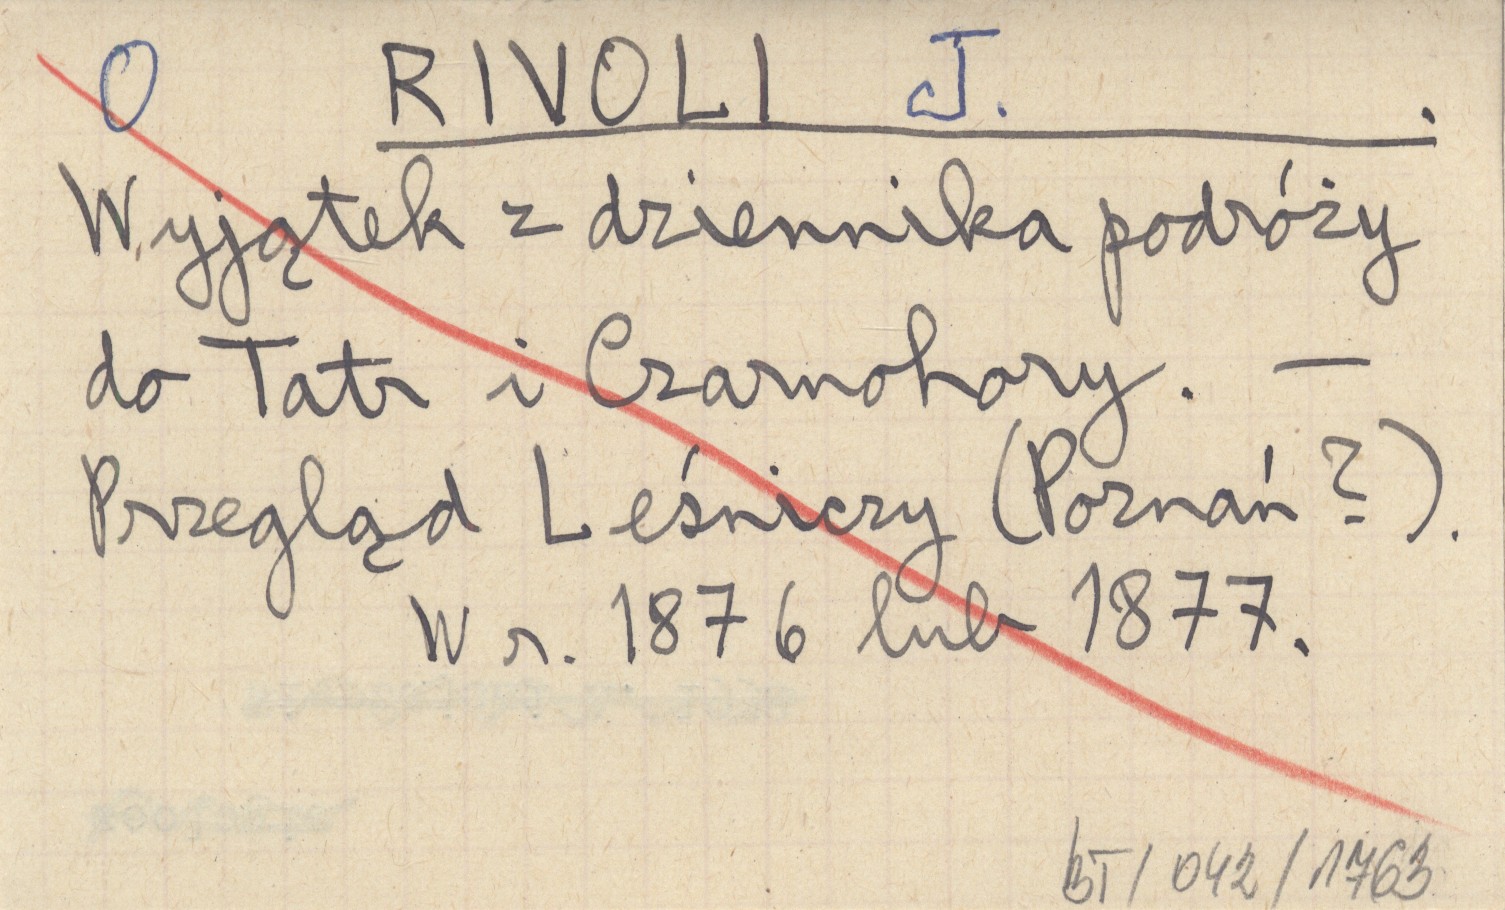 O RIVOLI J. .
Wyjątek z dziennika podróży
do Tatr i Czarnohory. —
Przegląd Leśniczy (Poznań?).
W r. 1876 lub 1877.
BT/042/1763